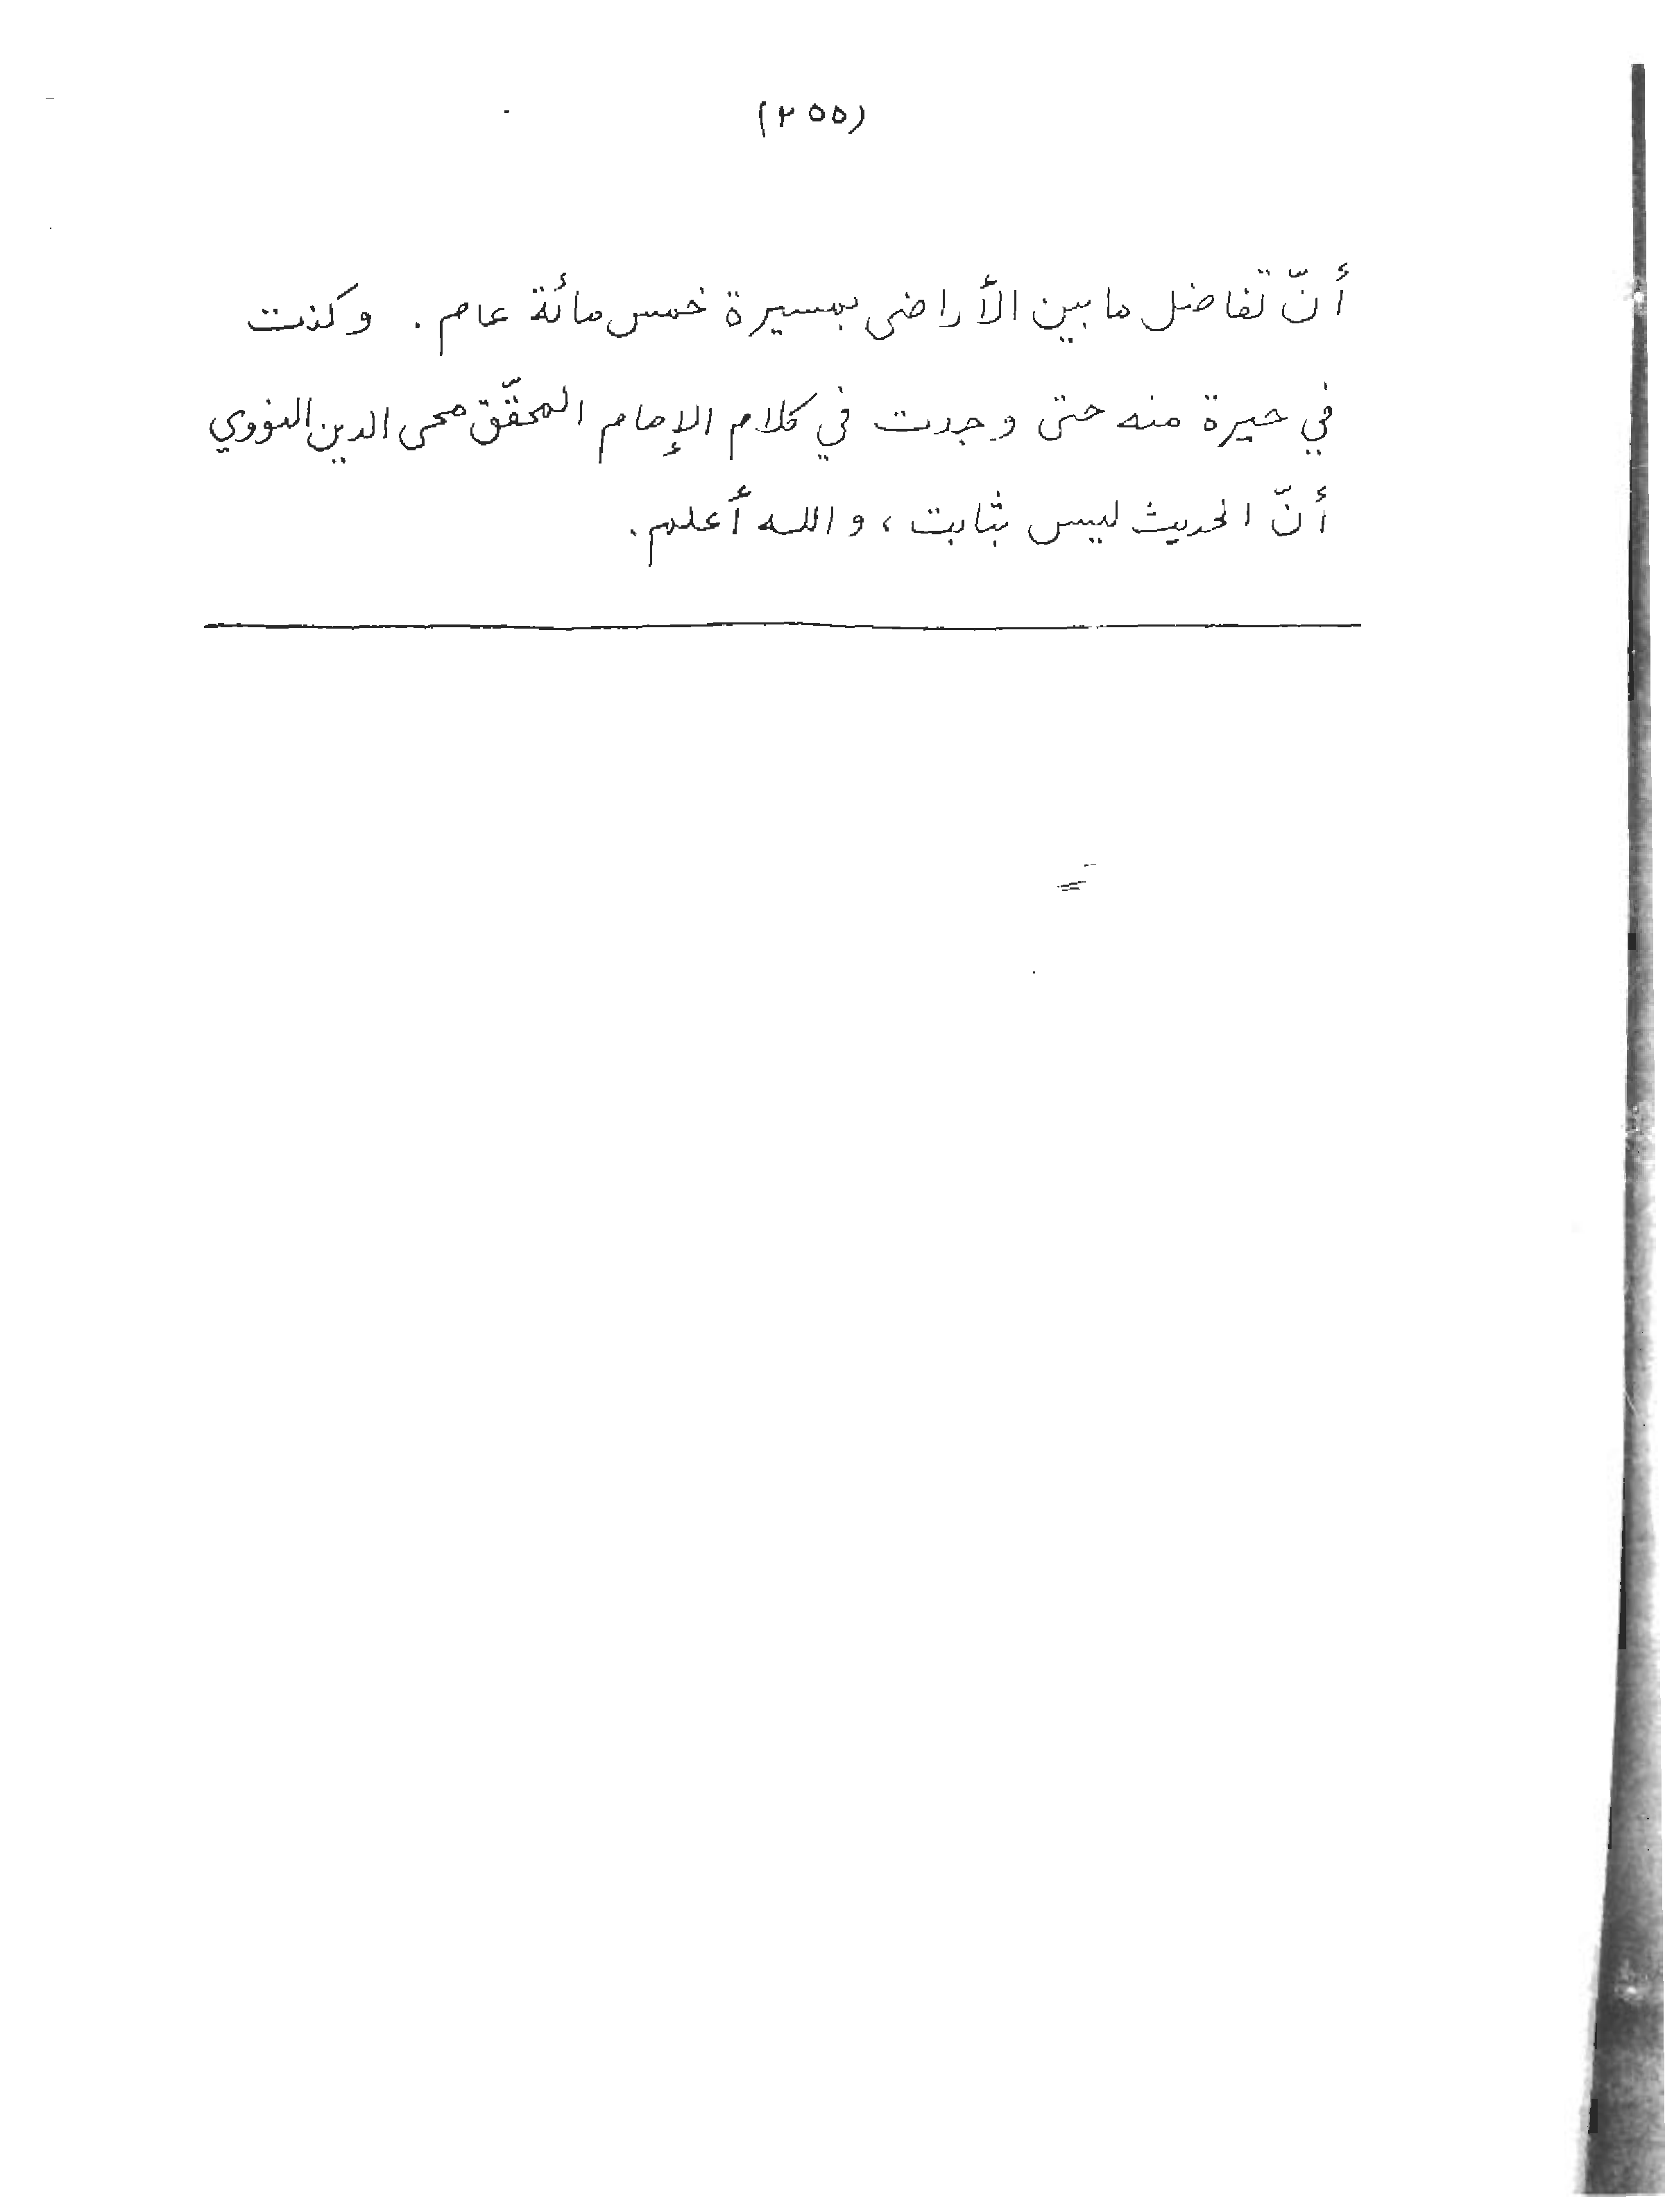 (٢٥٥)
أنّ تفاضل ما بين الأراضى بمسيرة خمس مائة عام. وكنت
في حيرة منه حتى وجدت في كلام الإمام المحقّق محى الدين النووي
أنّ الحديث ليس بثابت، والله أعلم.